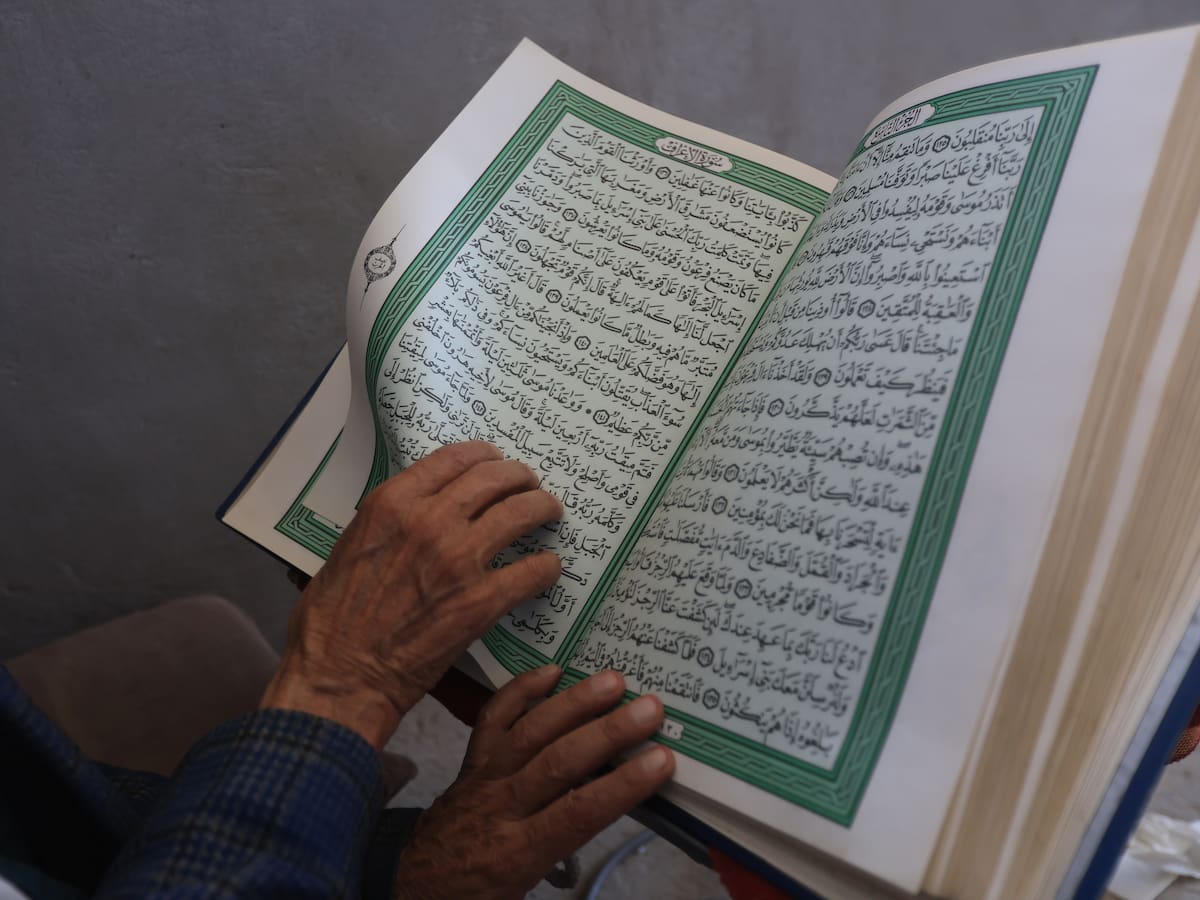 الجزء التاسع
إِلَى رَبِّنَا مُنقَلِبُونَ ١٢٥ وَمَا تَنقِمُ مِنَّا إِلَّا أَنْ
رَبَّنَا أَفْرِغْ عَلَيْنَا صَبْرًا وَتَوَفَّنَا مُسْلِمِينَ
أَتَذَرُ مُوسَى وَقَوْمَهُ لِيُفْسِدُوا فِي الْأَرْضِ
أَبْنَاءَهُمْ وَنَسْتَحْيِي نِسَاءَهُمْ وَإِنَّا فَوْقَهُمْ قَاهِرُونَ
اسْتَعِينُوا بِاللَّهِ وَاصْبِرُوا إِنَّ الْأَرْضَ لِلَّهِ
وَالْعَاقِبَةُ لِلْمُتَّقِينَ ١٢٨ قَالُوا أُوذِينَا مِن قَبْلِ
مَا جِئْتَنَا قَالَ عَسَى رَبُّكُمْ أَن يُهْلِكَ عَدُوَّكُمْ
فَيَنظُرَ كَيْفَ تَعْمَلُونَ ١٢٩ وَلَقَدْ أَخَذْنَا آلَ فِرْعَوْنَ
مِّنَ الثَّمَرَاتِ لَعَلَّهُمْ يَذَّكَّرُونَ ١٣٠ فَإِذَا جَاءَتْهُمُ
هَذِهِ وَإِن تُصِبْهُمْ سَيِّئَةٌ يَطَّيَّرُوا بِمُوسَى وَمَن مَّعَهُ أَلَا
عِندَ اللَّهِ وَلَكِنَّ أَكْثَرَهُمْ لَا يَعْلَمُونَ ١٣١ وَقَالُوا مَهْمَا
آيَةٍ لِّتَسْحَرَنَا بِهَا فَمَا نَحْنُ لَكَ بِمُؤْمِنِينَ ١٣٢ فَأَرْسَلْنَا عَلَيْهِمُ
وَالْجَرَادَ وَالْقُمَّلَ وَالضَّفَادِعَ وَالدَّمَ آيَاتٍ مُّفَصَّلَاتٍ
وَكَانُوا قَوْمًا مُّجْرِمِينَ ١٣٣ وَلَمَّا وَقَعَ عَلَيْهِمُ الرِّجْزُ قَالُوا
ادْعُ لَنَا رَبَّكَ بِمَا عَهِدَ عِندَكَ لَئِن كَشَفْتَ عَنَّا الرِّجْزَ لَنُؤْمِنَنَّ
وَلَنُرْسِلَنَّ مَعَكَ بَنِي إِسْرَائِيلَ ١٣٤ فَلَمَّا كَشَفْنَا عَنْهُمُ الرِّجْزَ إِلَى
بَالِغُوهُ إِذَا هُمْ يَنكُثُونَ ١٣٥ فَانتَقَمْنَا مِنْهُمْ فَأَغْرَقْنَاهُمْ فِي الْيَمِّ
سورة الأعراف
كَذَّبُوا بِآيَاتِنَا وَكَانُوا عَنْهَا غَافِلِينَ ١٣٦ وَأَوْرَثْنَا الْقَوْمَ الَّذِينَ
كَانُوا يُسْتَضْعَفُونَ مَشَارِقَ الْأَرْضِ وَمَغَارِبَهَا الَّتِي بَارَكْنَا
فِيهَا وَتَمَّتْ كَلِمَتُ رَبِّكَ الْحُسْنَى عَلَى بَنِي إِسْرَائِيلَ بِمَا صَبَرُوا وَدَمَّرْنَا
مَا كَانَ يَصْنَعُ فِرْعَوْنُ وَقَوْمُهُ وَمَا كَانُوا يَعْرِشُونَ ١٣٧ وَجَاوَزْنَا بِبَنِي
إِسْرَائِيلَ الْبَحْرَ فَأَتَوْا عَلَى قَوْمٍ يَعْكُفُونَ عَلَى أَصْنَامٍ لَّهُمْ قَالُوا يَا مُوسَى
اجْعَل لَّنَا إِلَهًا كَمَا لَهُمْ آلِهَةٌ قَالَ إِنَّكُمْ قَوْمٌ تَجْهَلُونَ ١٣٨ إِنَّ هَؤُلَاءِ
مُتَبَّرٌ مَّا هُمْ فِيهِ وَبَاطِلٌ مَّا كَانُوا يَعْمَلُونَ ١٣٩ قَالَ أَغَيْرَ اللَّهِ أَبْغِيكُمْ
إِلَهًا وَهُوَ فَضَّلَكُمْ عَلَى الْعَالَمِينَ ١٤٠ وَإِذْ أَنجَيْنَاكُم مِّنْ آلِ فِرْعَوْنَ يَسُومُونَكُمْ
سُوءَ الْعَذَابِ يُقَتِّلُونَ أَبْنَاءَكُمْ وَيَسْتَحْيُونَ نِسَاءَكُمْ وَفِي ذَلِكُم بَلَاءٌ
مِّن رَّبِّكُمْ عَظِيمٌ ١٤١ وَوَاعَدْنَا مُوسَى ثَلَاثِينَ لَيْلَةً وَأَتْمَمْنَاهَا بِعَشْرٍ
فَتَمَّ مِيقَاتُ رَبِّهِ أَرْبَعِينَ لَيْلَةً وَقَالَ مُوسَى لِأَخِيهِ هَارُونَ اخْلُفْنِي
فِي قَوْمِي وَأَصْلِحْ وَلَا تَتَّبِعْ سَبِيلَ الْمُفْسِدِينَ ١٤٢ وَلَمَّا جَاءَ مُوسَى لِمِيقَاتِنَا
وَكَلَّمَهُ رَبُّهُ قَالَ تَرَانِي وَلَكِنِ انظُرْ إِلَى
الْجَبَلِ فَإِنِ رَبُّهُ لِلْجَبَلِ جَعَلَهُ
دَكًّا مُوسَى
أَوَّلُ
وَبِكَلَامِي